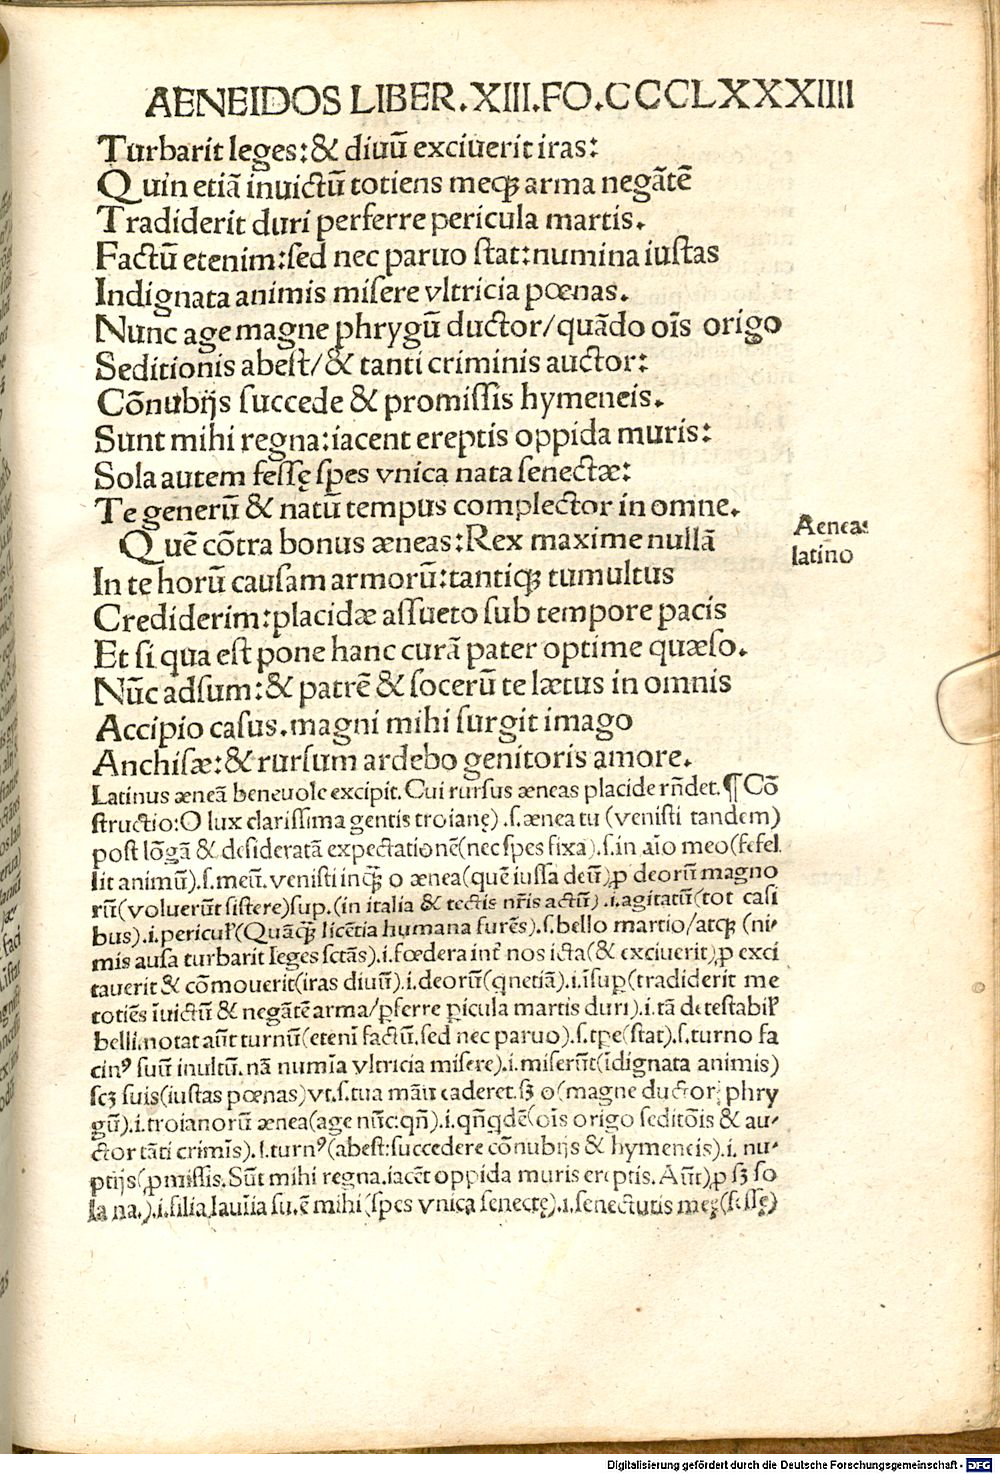 AENEIDOS LIBER.XIII.FO.CCCCLXXXIIII
Turbarit leges:& diuũ exciuerit iras:
Quin etiã inuictũ totiens meqȝ arma negãtẽ
Tradiderit duri perferre pericula martis.
Factũ etenim:sed nec paruo stat:numina iustas
Indignata animis misere vltricia pœnas.
Nunc age magne phrygũ ductor/quãdo oĩs origo
Seditionis abest/& tanti criminis auctor:
Cõnubijs succede & promissis hymeneis.
Sunt mihi regna:iacent ereptis oppida muris:
Sola autem fessę spes vnica nata senectæ:
Te generũ & natũ tempus complector in omne.
Quẽ cõtra bonus æneas:Rex maxime nullã
In te horũ causam armorũ:tantiqȝ tumultus
Crediderim:placidæ assueto sub tempore pacis
Et si qua est pone hanc curã pater optime quæso.
Nũc adsum:& patrẽ & socerũ te lætus in omnis
Accipio casus.magni mihi surgit imago
Anchisæ:& rursum ardebo genitoris amore.
Aeneas
latino
Latinus æneã beneuole excipit.Cui rursus æneas placide rñdet.¶ Cõ
structio:O lux clarissima gentis troianę).s.ænea tu (venisti tandem)
post lõgã & desideratã expectationẽ(nec spes fixa).s.in aĩo meo(fefel
lit animũ).s.meũ.venisti inqȝ o ænea(quẽ iussa deũ)ꝑ deorũ magno
rũ(voluerũt sistere)sup.(in italia & tectis nr̃is actũ).i.agitatũ(tot casi
bus).i.pericul̃(Quãcqȝ licẽtia humana furẽs).s.bello martio/atqȝ (ni-
mis ausa turbarit leges sctãs).i.fœdera int̃ nos icta(& exciuerit)ꝓ exci
tauerit & cõmouerit(iras diuũ).i.deorũ(qnetiã).i.ĩsuꝑ(tradiderit me
totiẽs ĩuictũ & negãtẽ arma/ꝑferre ꝑicula martis duri).i.tã detestabil̃
belli.notat aũt turnũ(etenĩ factũ.sed nec paruo).s.tꝑe(stat).s.turno fa
cinꝰ suũ inultũ.nã numĩa vltricia misere).i.miserũt(ĩdignata animis)
scȝ suis(iustas pœnas)vt.s.tua manu caderet.sȝ o(magne ductor phry
gũ).i.troianorũ ænea(age nũc:qñ).i.qñqdẽ(oĩs origo seditõis & au-
ctor tãti crimĩs).s.turnꝰ(abest:succedere cõnubijs & hymeneis).i. nu-
ptijs(ꝓmissis.Sũt mihi regna.iacẽt oppida muris ereptis.Aũt)ꝓ sȝ so
la na.).i.filia lauĩia su.ẽ mihi(spes vnica senectę).i.senectutis meę(fessę)
Digitalisierung gefördert durch die Deutsche Forschungsgemeinschaft - DFG